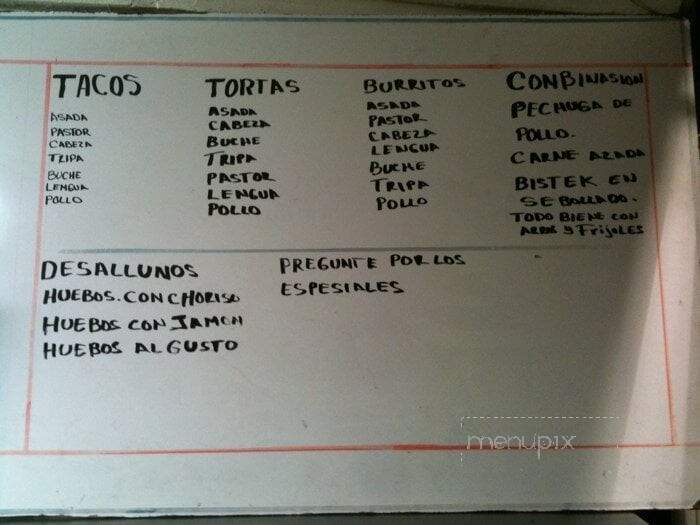 TACOS
ASADA
PASTOR
CABEZA
TRIPA
BUCHE
LENGUA
POLLO
TORTAS
ASADA
CABEZA
BUCHE
TRIPA
PASTOR
LENGUA
POLLO
BURRITOS
ASADA
PASTOR
CABEZA
LENGUA
BUCHE
TRIPA
POLLO
CONBINASION
PECHUGA DE
POLLO.
CARNE AZADA
BISTEK EN
SEBOLLADO.
TODO BIENE CON
ARROS Y FriJOLES
DESALLUNOS
HUEBOS. CON CHORISO
HUEBOS CON JAMON
HUEBOS AL GUSTO
PREGUNTE POR LOS
ESPESIALES
menupix